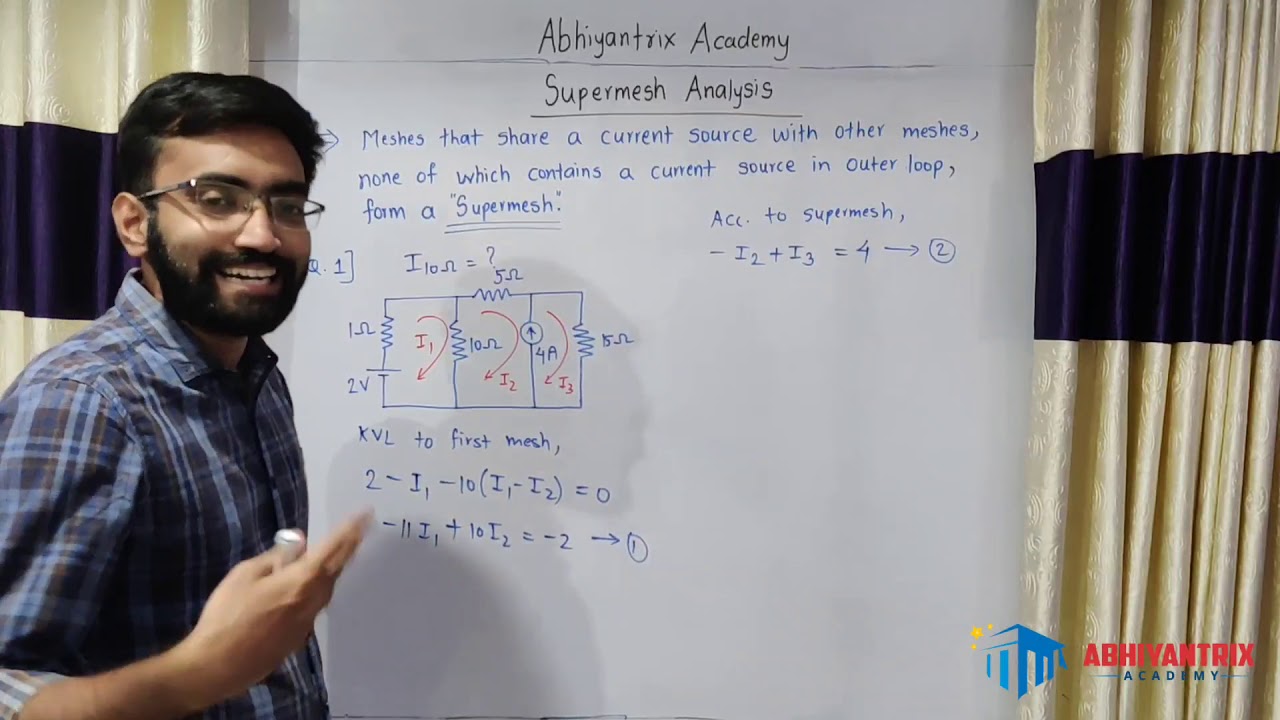 Abhiyantrix Academy
Supermesh Analysis
⇒ Meshes that share a current source with other meshes,
none of which contains a current source in outer loop,
form a "Supermesh".
Q. 1] I10Ω = ?
5Ω
1Ω
I1
10Ω
I2
4A
I3
15Ω
2V
KVL to first mesh,
2 - I1 - 10(I1 - I2) = 0
-11I1 + 10I2 = -2 → ①
Acc. to supermesh,
- I2 + I3 = 4 → ②
ABHIYANTRIX
ACADEMY